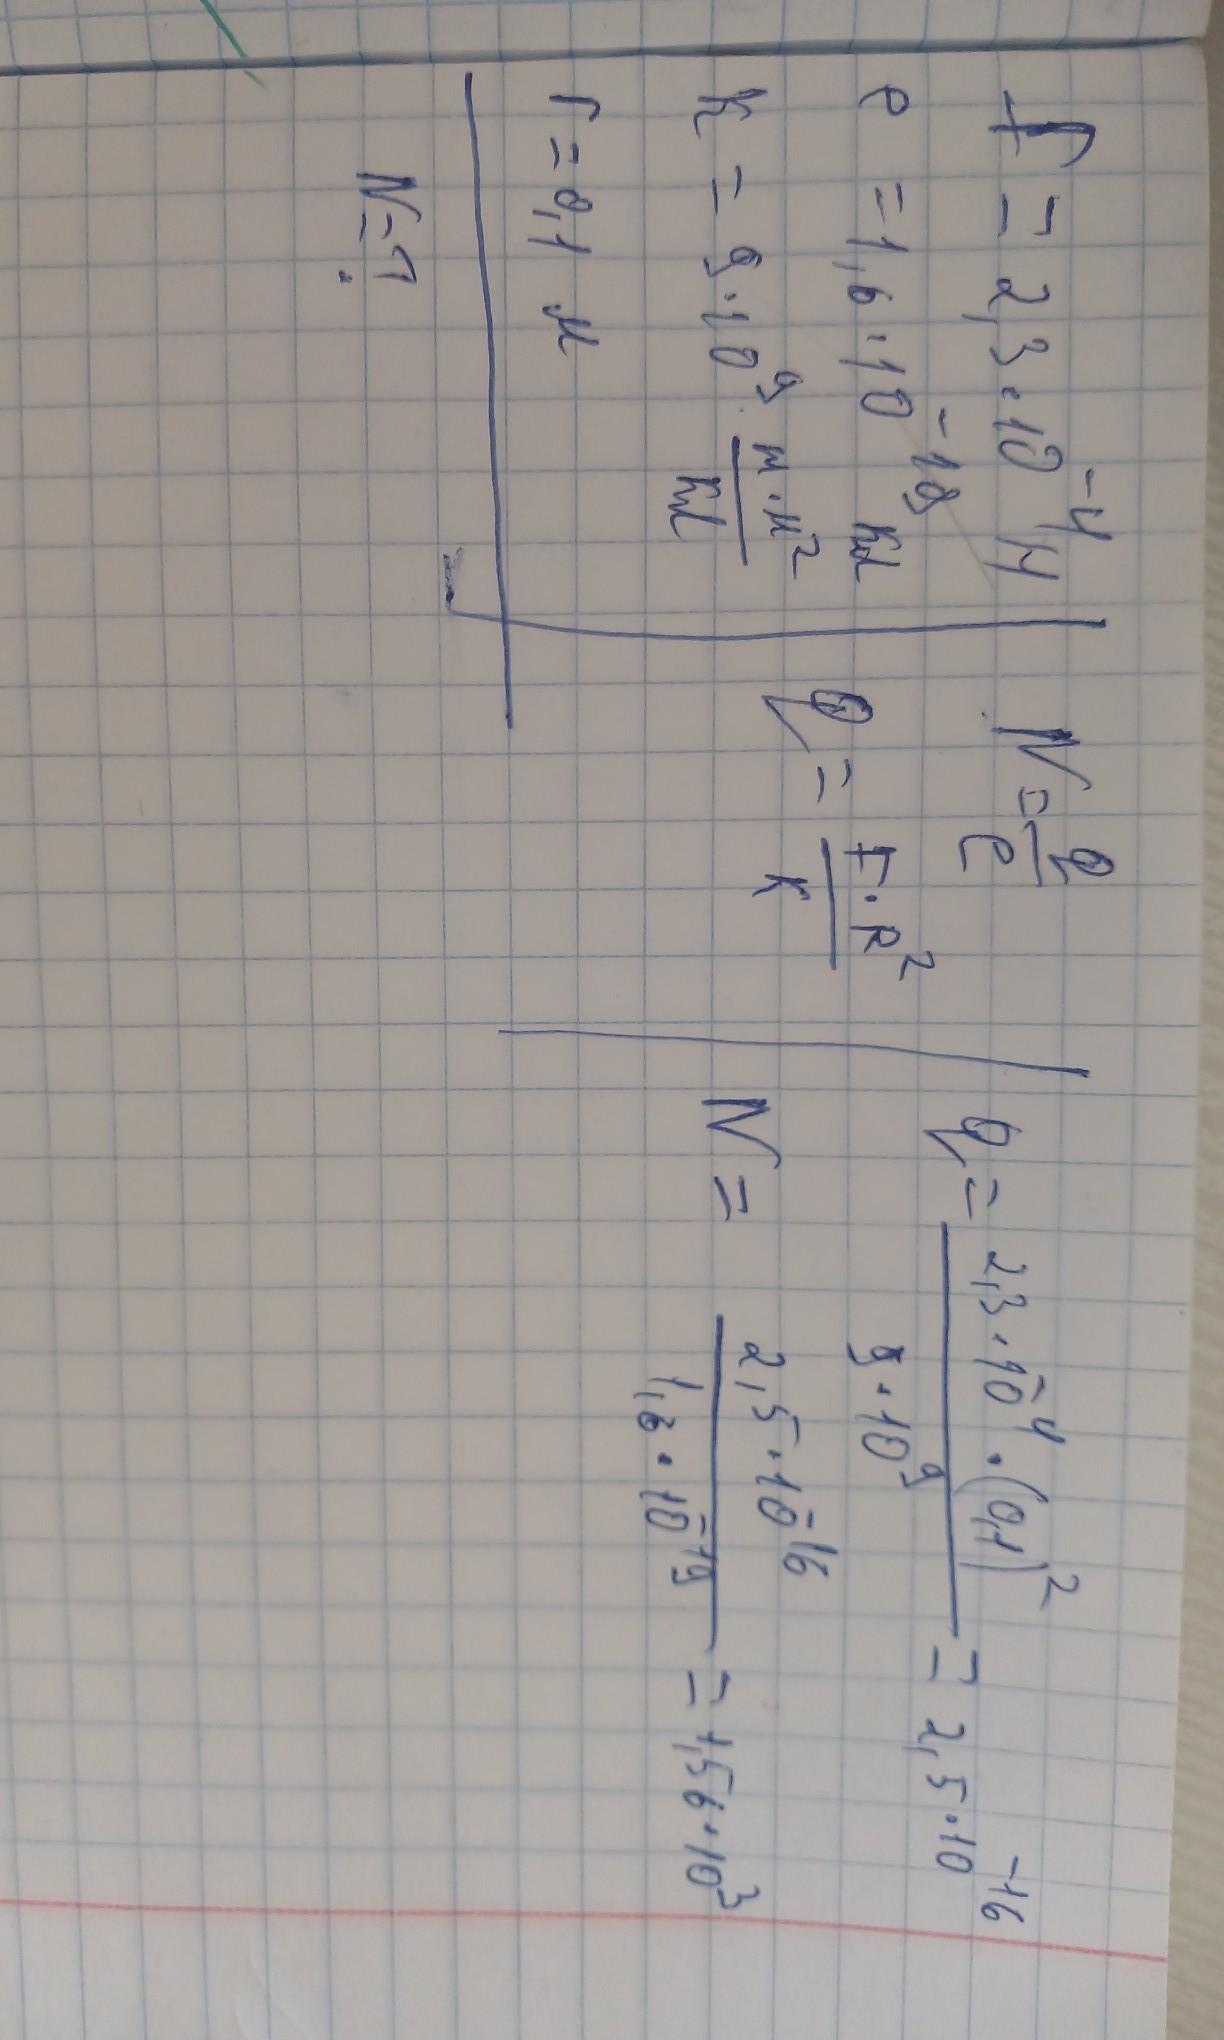 F = 2,3·10⁻⁴ Н
e = 1,6·10⁻¹⁹ Кл
k = 9·10⁹ · м·м²/Кл
r = 0,1 м
N = ?
N = Q/e
Q = F·R²/K
Q = 2,3·10⁻⁴·(0,1)²/9·10⁹ = 2,5·10⁻¹⁶
N = 2,5·10⁻¹⁶/1,6·10⁻¹⁹ = 1,56·10³